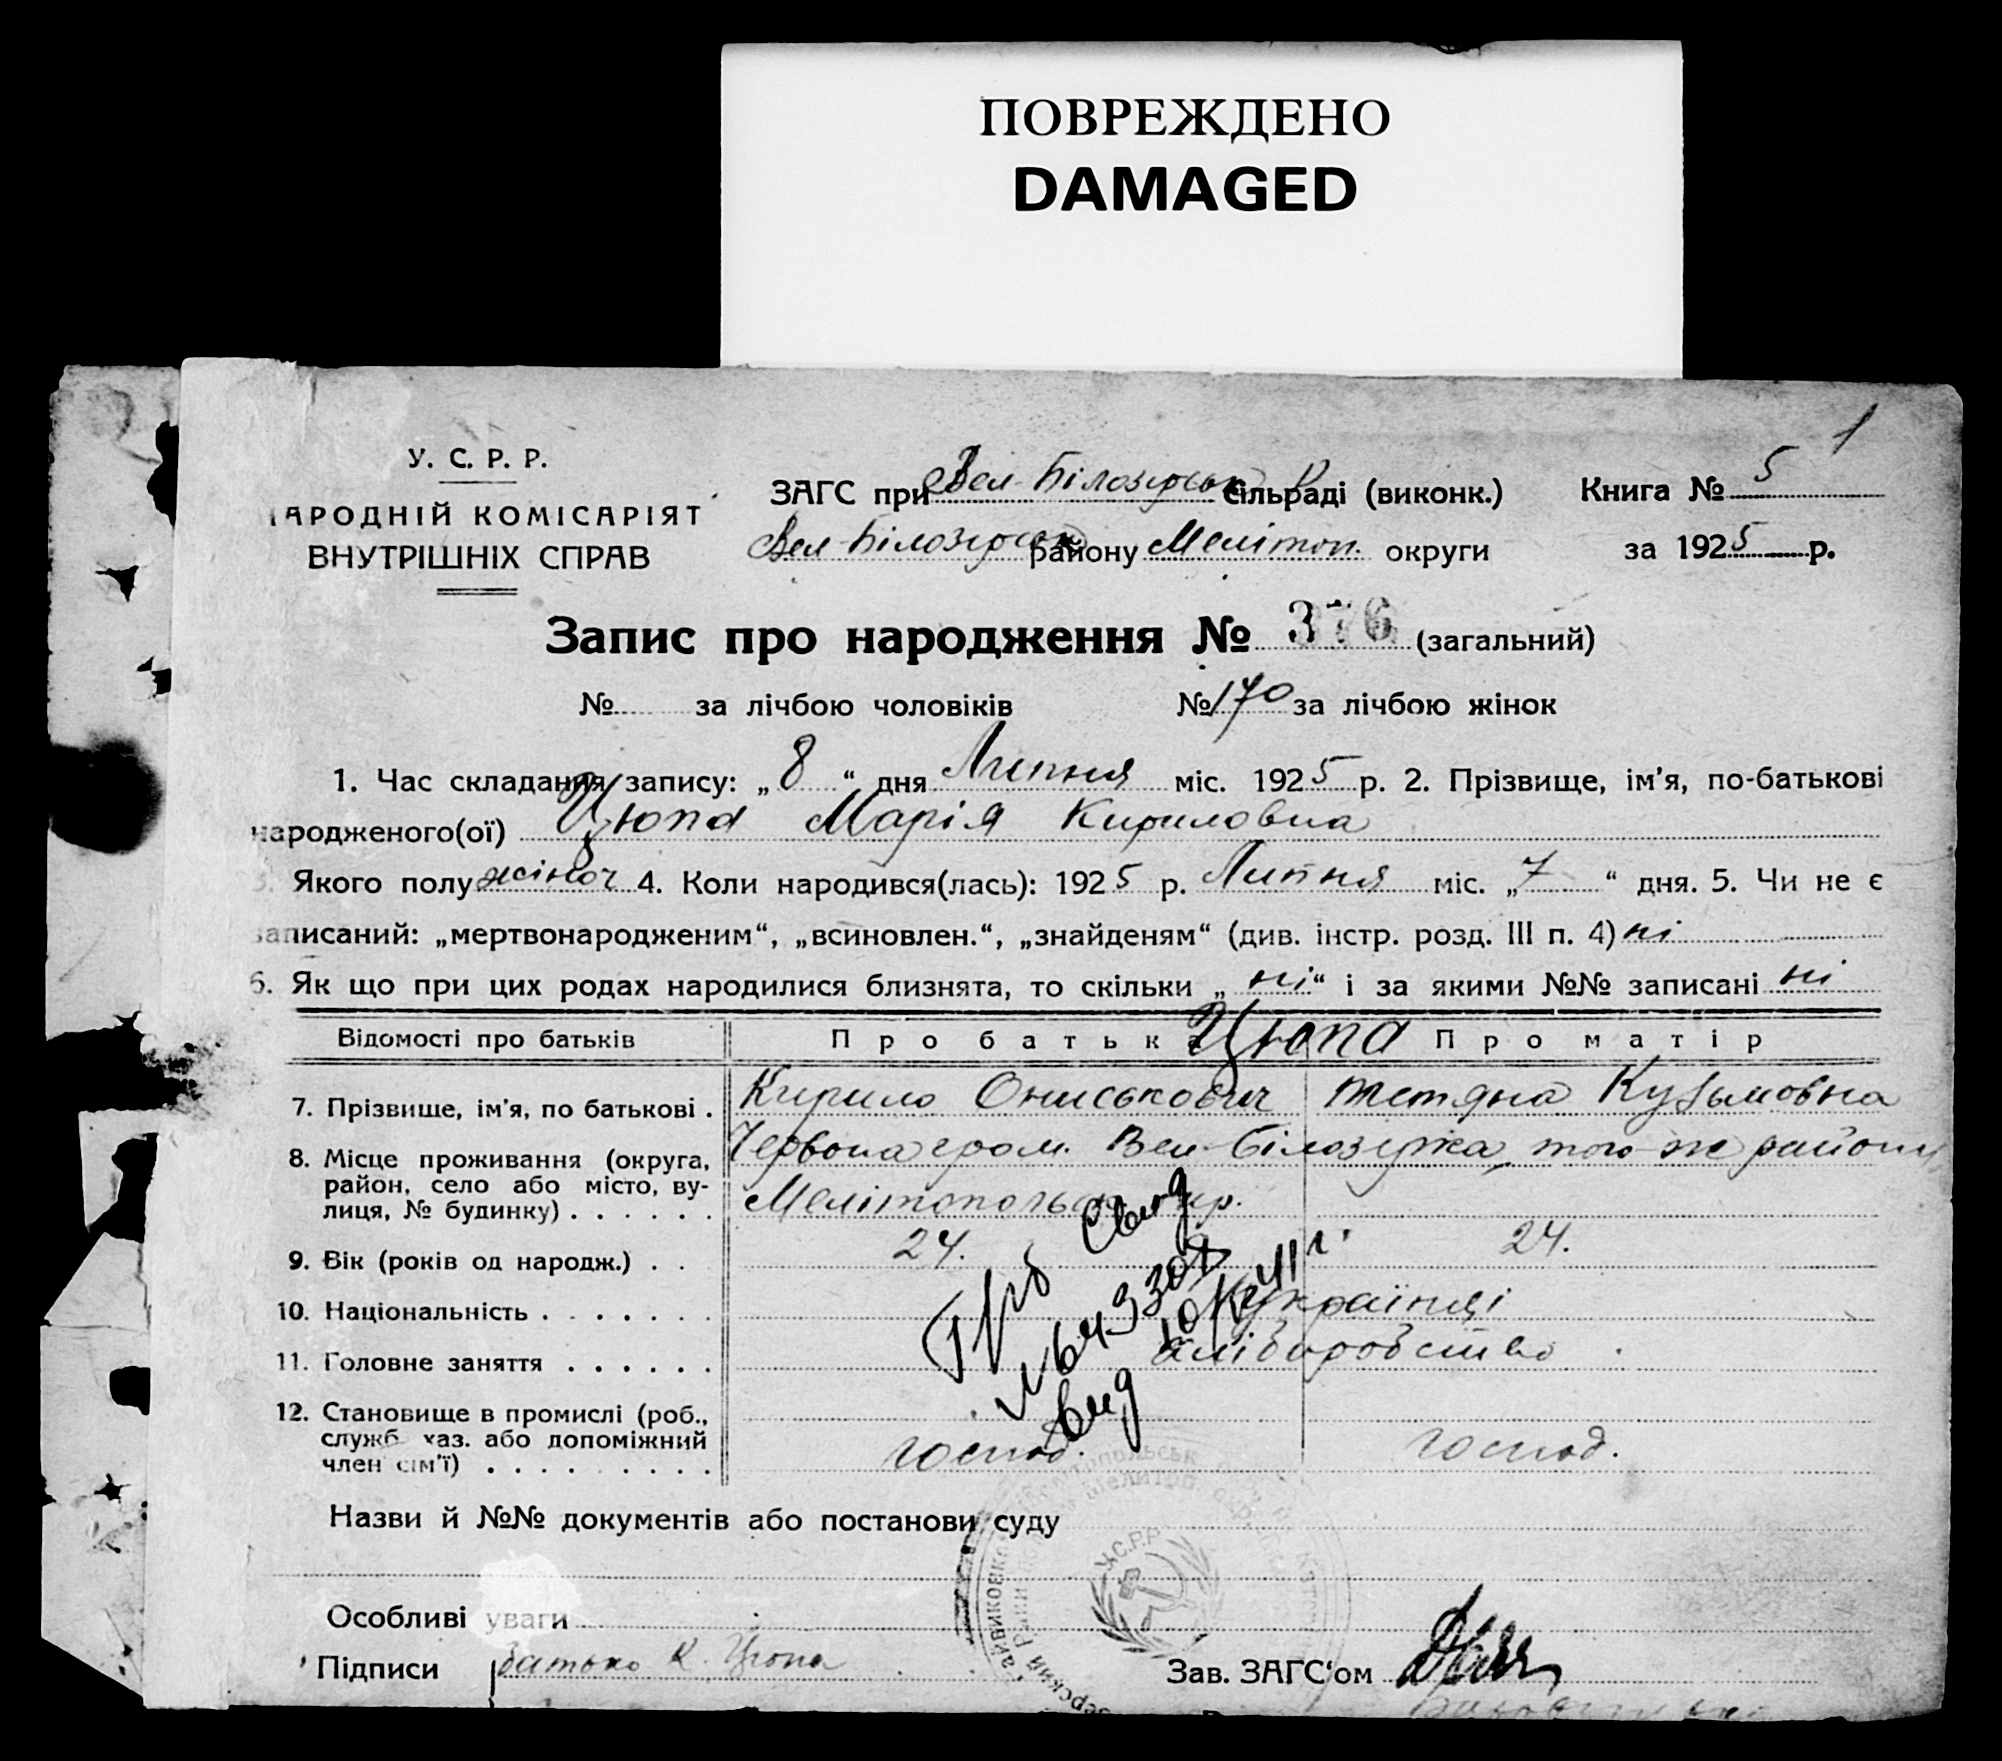 ПОВРЕЖДЕНО
DAMAGED
1
У. С. Р. Р.
НАРОДНІЙ КОМІСАРІЯТ
ВНУТРІШНІХ СПРАВ
ЗАГС при Вел-Білозерськ Р сільраді (виконк.) Книга № 5
Вел-Білозерськ району Мелітоп. округи за 1925 р.
Запис про народження № 376 (загальний)
№ за лічбою чоловіків № 170 за лічбою жінок
1. Час складання запису: „8“ дня Липня міс. 1925 р. 2. Прізвище, ім'я, по-батькові
народженого(ої) Цюпа Марія Кириловна
3. Якого полу жіноч 4. Коли народився(лась): 1925 р. Липня міс. „7“ дня. 5. Чи не є
записаний: „мертвонародженим“, „всиновлен.“, „знайденям“ (див. інстр. розд. III п. 4) ні
6. Як що при цих родах народилися близнята, то скільки „ні“ і за якими №№ записані ні
Відомості про батьків Про батька Цюпа Про матір
7. Прізвище, ім'я, по батькові . Кирило Ониськович Тетяна Кузьмовна
8. Місце проживання (округа, район, село або місто, вулиця, № будинку) . . . . . . Червона гром. Вел-Білозерка того-же району
Мелітопольськ окр.
9. Вік (років од народж.) . . 24. 24.
10. Національність . . . . . . . українці
11. Головне заняття . . . . . . хліборобство
12. Становище в промислі (роб., служб. хаз. або допоміжний член сім'ї) . . . . . . . . . господ. господ.
свид
№ 643308
вид
Назви й №№ документів або постанови суду
У.С.Р.Р.
Особливі уваги
Підписи Батько К. Цюпа Зав. ЗАГС'ом